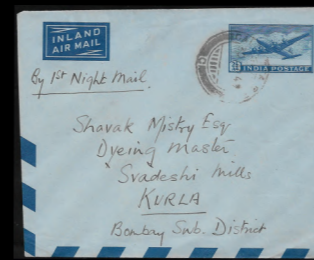 INLAND
AIR MAIL
INDIA POSTAGE
By 1st Night Mail.
Shavak Mistry Esq
Dyeing Master
Svadeshi Mills
KURLA
Bombay Sub. District